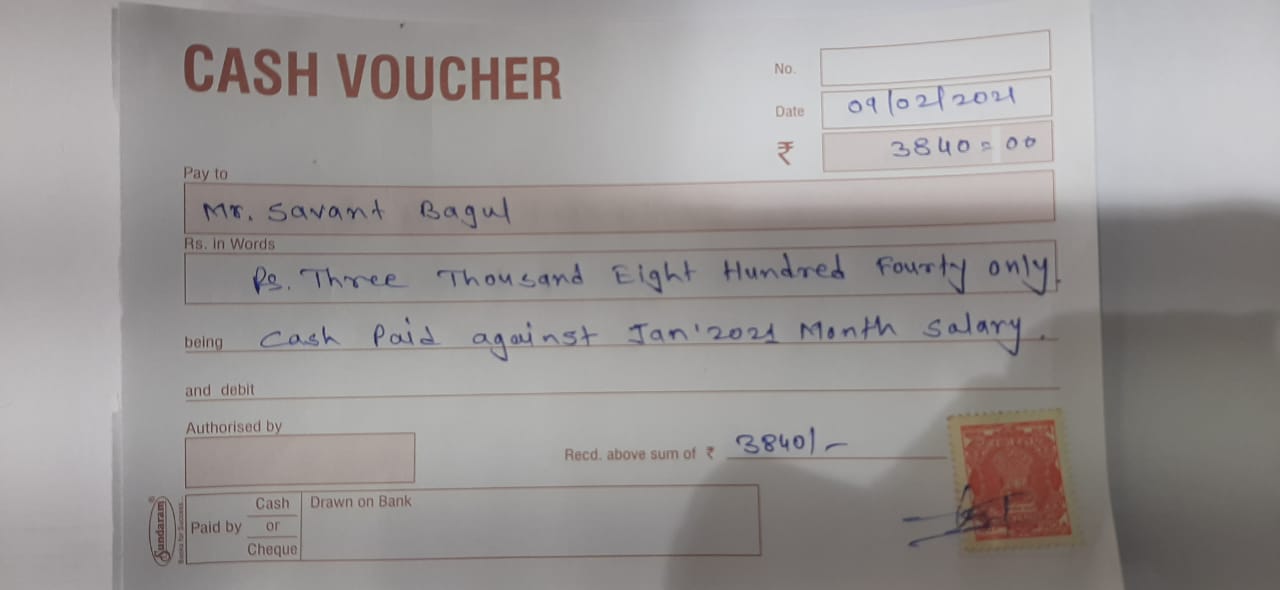 CASH VOUCHER
No.
Date 09/02/2021
₹ 3840=00
Pay to
Mr. Savant Bagul
Rs. in Words
Rs. Three Thousand Eight Hundred Fourty only.
being Cash Paid against Jan'2021 Month Salary.
and debit
Authorised by
Recd. above sum of ₹ 3840/-
Paid by Cash or Cheque
Drawn on Bank
Sundaram®
Books for Success